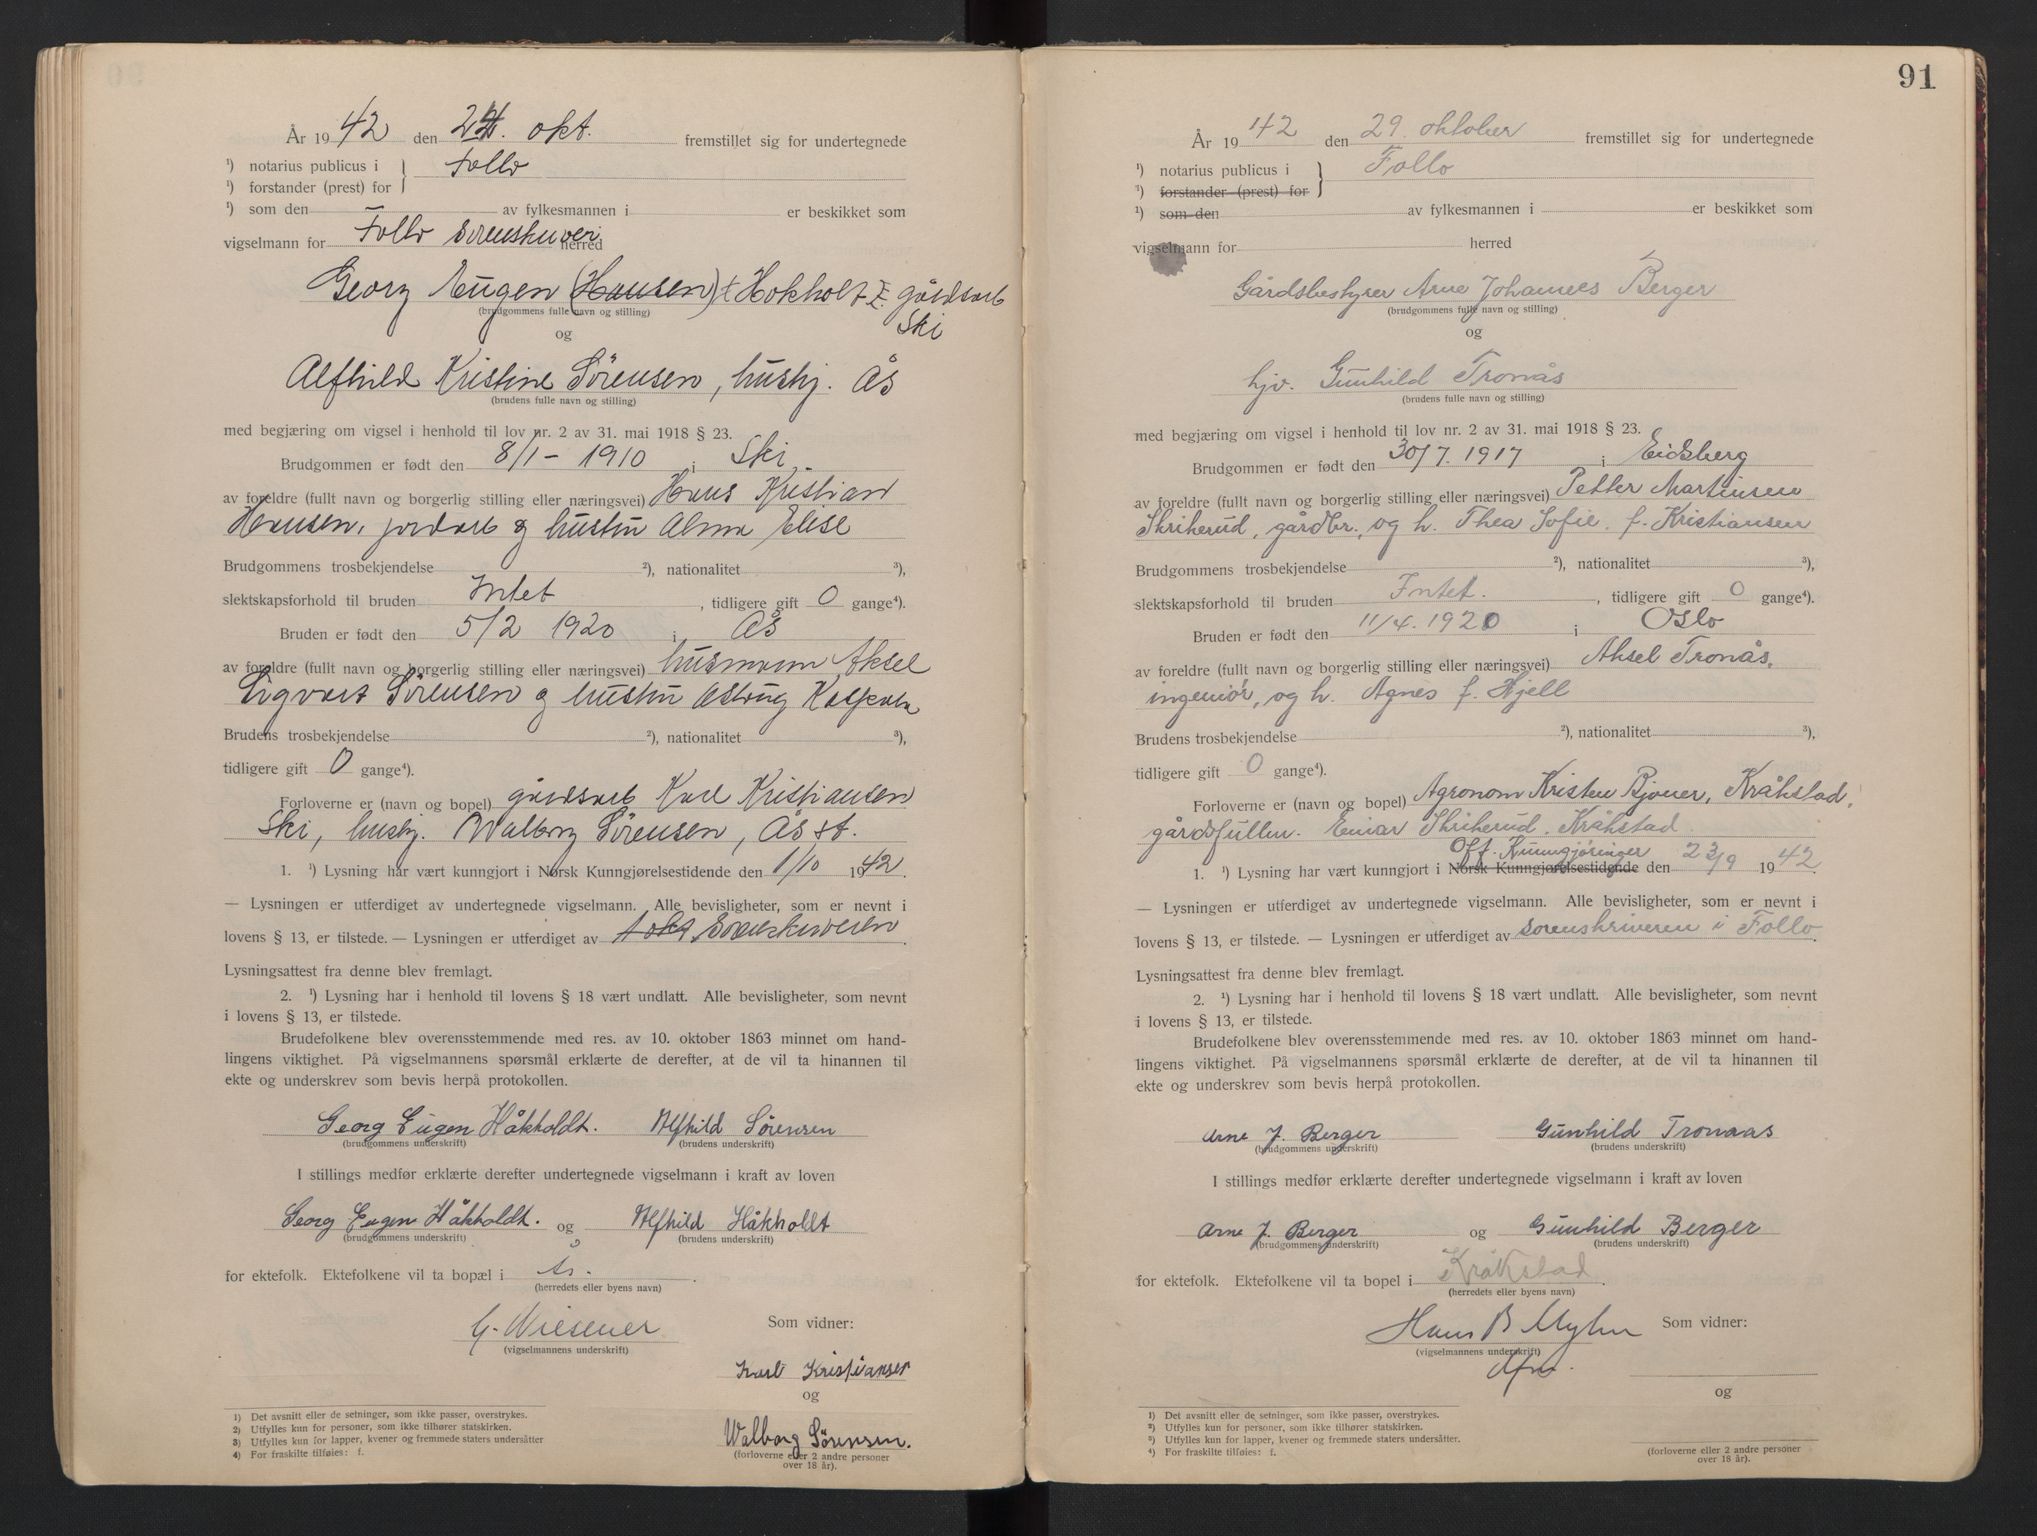 År 1942 den 24. okt. fremstillet sig for undertegnede
¹) notarius publicus i } Follo
¹) forstander (prest) for
¹) som den av fylkesmannen i er beskikket som
vigselmann for Follo sorenskriveri herred
Georg Eugen (Hansen) Hokholt gårdsarb
Ski
(brudgommens fulle navn og stilling)
og
Alfhild Kristine Sörensen, hushj. Ås
(brudens fulle navn og stilling)
med begjæring om vigsel i henhold til lov nr. 2 av 31. mai 1918 § 23.
Brudgommen er født den 8/1 - 1910 i Ski.
av foreldre (fullt navn og borgerlig stilling eller næringsvei) Hans Kristian
Hansen, jordarb & hustru Alma Elise
Brudgommens trosbekjendelse ²), nationalitet ³),
slektskapsforhold til bruden Intet, tidligere gift 0 gange⁴).
Bruden er født den 5/2 1920 i Ås
av foreldre (fullt navn og borgerlig stilling eller næringsvei) husmann Aksel
Sigvart Sörensen & hustru Astrug
Brudens trosbekjendelse ²), nationalitet ³),
tidligere gift 0 gange⁴).
Forloverne er (navn og bopel) gårdsarb Karl Kristiansen
Ski, hushj. Walborg Sörensen, Ås st.
1. ¹) Lysning har vært kunngjort i Norsk Kunngjørelsestidende den 1/10 1942.
— Lysningen er utferdiget av undertegnede vigselmann. Alle bevisligheter, som er nevnt i
lovens § 13, er tilstede. — Lysningen er utferdiget av Sorenskriveren.
Lysningsattest fra denne blev fremlagt.
2. ¹) Lysning har i henhold til lovens § 18 vært undlatt. Alle bevisligheter, som nevnt
i lovens § 13, er tilstede.
Brudefolkene blev overensstemmende med res. av 10. oktober 1863 minnet om hand-
lingens viktighet. På vigselmannens spørsmål erklærte de derefter, at de vil ta hinannen til
ekte og underskrev som bevis herpå protokollen.
Georg Eugen Håkholdt. Alfhild Sörensen
(brudgommens underskrift) (brudens underskrift)
I stillings medfør erklærte derefter undertegnede vigselmann i kraft av loven
Georg Eugen Håkholdt. og Alfhild Håkholdt
(brudgommens underskrift) (brudens underskrift)
for ektefolk. Ektefolkene vil ta bopæl i Ås.
(herredets eller byens navn)
G. Wiesener Som vidner:
(vigselmannens underskrift)
Karl Kristiansen
og
Walborg Sörensen.
(forloverne eller 2 andre personer
over 18 år).
1) Det avsnitt eller de setninger, som ikke passer, overstrykes.
2) Utfylles kun for personer, som ikke tilhører statskirken.
3) Utfylles kun for lapper, kvener og fremmede staters undersåtter
4) For fraskilte tilføies: f.
91
År 1942 den 29. oktober fremstillet sig for undertegnede
¹) notarius publicus i } Follo
¹) forstander (prest) for
¹) som den av fylkesmannen i er beskikket som
vigselmann for herred
Gårdsbestyrer Arne Johannes Berger
(brudgommens fulle navn og stilling)
og
hjv. Gunhild Tronås
(brudens fulle navn og stilling)
med begjæring om vigsel i henhold til lov nr. 2 av 31. mai 1918 § 23.
Brudgommen er født den 30/7. 1917 i Eidsberg
av foreldre (fullt navn og borgerlig stilling eller næringsvei) Petter Martinsen
Skriherud, gårdbr., og h. Thea Sofie. f. Kristiansen
Brudgommens trosbekjendelse ²), nationalitet ³),
slektskapsforhold til bruden Intet., tidligere gift 0 gange⁴).
Bruden er født den 11/4. 1920 i Oslo
av foreldre (fullt navn og borgerlig stilling eller næringsvei) Aksel Tronås,
ingeniör, og h. Agnes f. Hjell
Brudens trosbekjendelse ²), nationalitet ³),
tidligere gift 0 gange⁴).
Forloverne er (navn og bopel) Agronom Kristen Bjoner, Kråkstad,
gårdsfullm. Einar Skriherud. Kråkstad.
Off. Kunngjøringer
1. ¹) Lysning har vært kunngjort i Norsk Kunngjørelsestidende den 23/9 1942.
— Lysningen er utferdiget av undertegnede vigselmann. Alle bevisligheter, som er nevnt i
lovens § 13, er tilstede. — Lysningen er utferdiget av sorenskriveren i Follo.
Lysningsattest fra denne blev fremlagt.
2. ¹) Lysning har i henhold til lovens § 18 vært undlatt. Alle bevisligheter, som nevnt
i lovens § 13, er tilstede.
Brudefolkene blev overensstemmende med res. av 10. oktober 1863 minnet om hand-
lingens viktighet. På vigselmannens spørsmål erklærte de derefter, at de vil ta hinannen til
ekte og underskrev som bevis herpå protokollen.
Arne J. Berger Gunhild Tronaas
(brudgommens underskrift) (brudens underskrift)
I stillings medfør erklærte derefter undertegnede vigselmann i kraft av loven
Arne J. Berger og Gunhild Berger
(brudgommens underskrift) (brudens underskrift)
for ektefolk. Ektefolkene vil ta bopel i Kråkstad.
(herredets eller byens navn)
Hans B Myhre Som vidner:
(vigselmannens underskrift)
og
(forloverne eller 2 andre personer
over 18 år).
¹) Det avsnitt eller de setninger, som ikke passer, overstrykes.
²) Utfylles kun for personer, som ikke tilhører statskirken.
³) Utfylles kun for lapper, kvener og fremmede staters undersåtter.
⁴) For fraskilte tilføies: f.